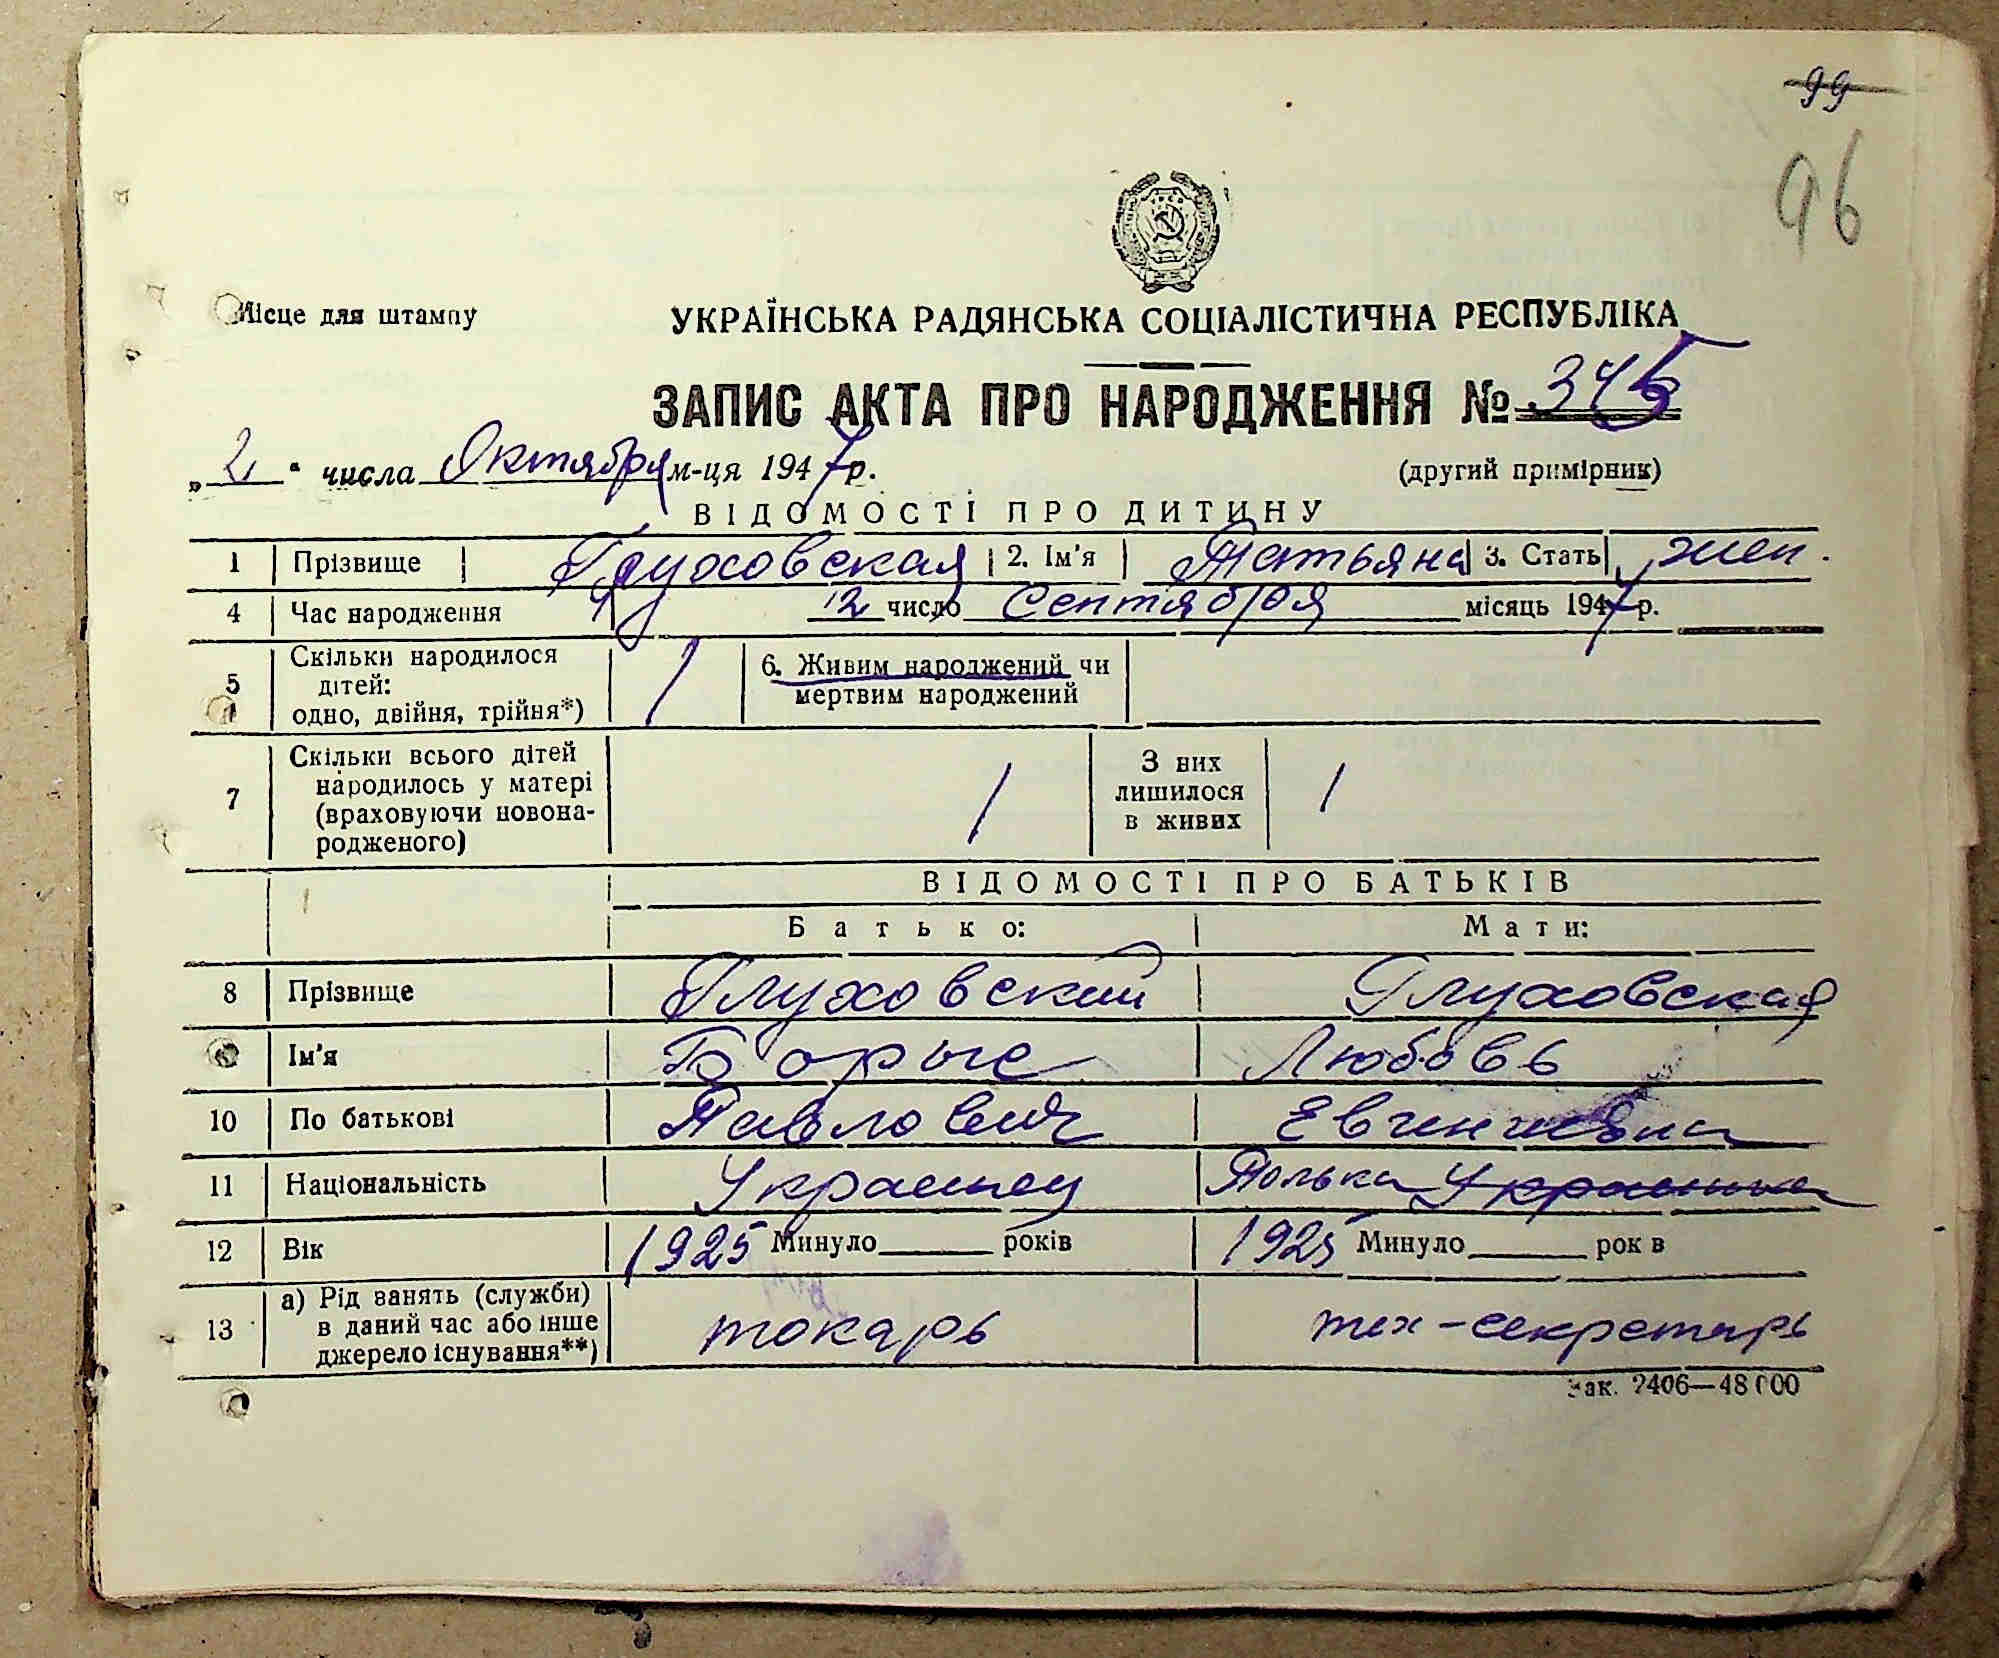 99
96
Місце для штампу
УКРАЇНСЬКА РАДЯНСЬКА СОЦІАЛІСТИЧНА РЕСПУБЛІКА
ЗАПИС АКТА ПРО НАРОДЖЕННЯ № 345
„2“ числа Октября м-ця 1947 р. (другий примірник)
ВІДОМОСТІ ПРО ДИТИНУ
1 Прізвище Глуховская 2. Ім'я Татьяна 3. Стать жен.
4 Час народження 12 число Сентября місяць 1947 р.
5 Скільки народилося дітей: одно, двійня, трійня*) 1 6. Живим народжений чи мертвим народжений
7 Скільки всього дітей народилось у матері (враховуючи новонародженого) 1 З них лишилося в живих 1
ВІДОМОСТІ ПРО БАТЬКІВ
Батько: Мати:
8 Прізвище Глуховский Глуховская
Ім'я Борыс Любовь
10 По батькові Павлович
11 Національність Украинец Полька Украинка
12 Вік 1925 Минуло років 1925 Минуло рок в
13 а) Рід занять (служби) в даний час або інше джерело існування**) токарь тех-секретарь
Зак. 2406—48000